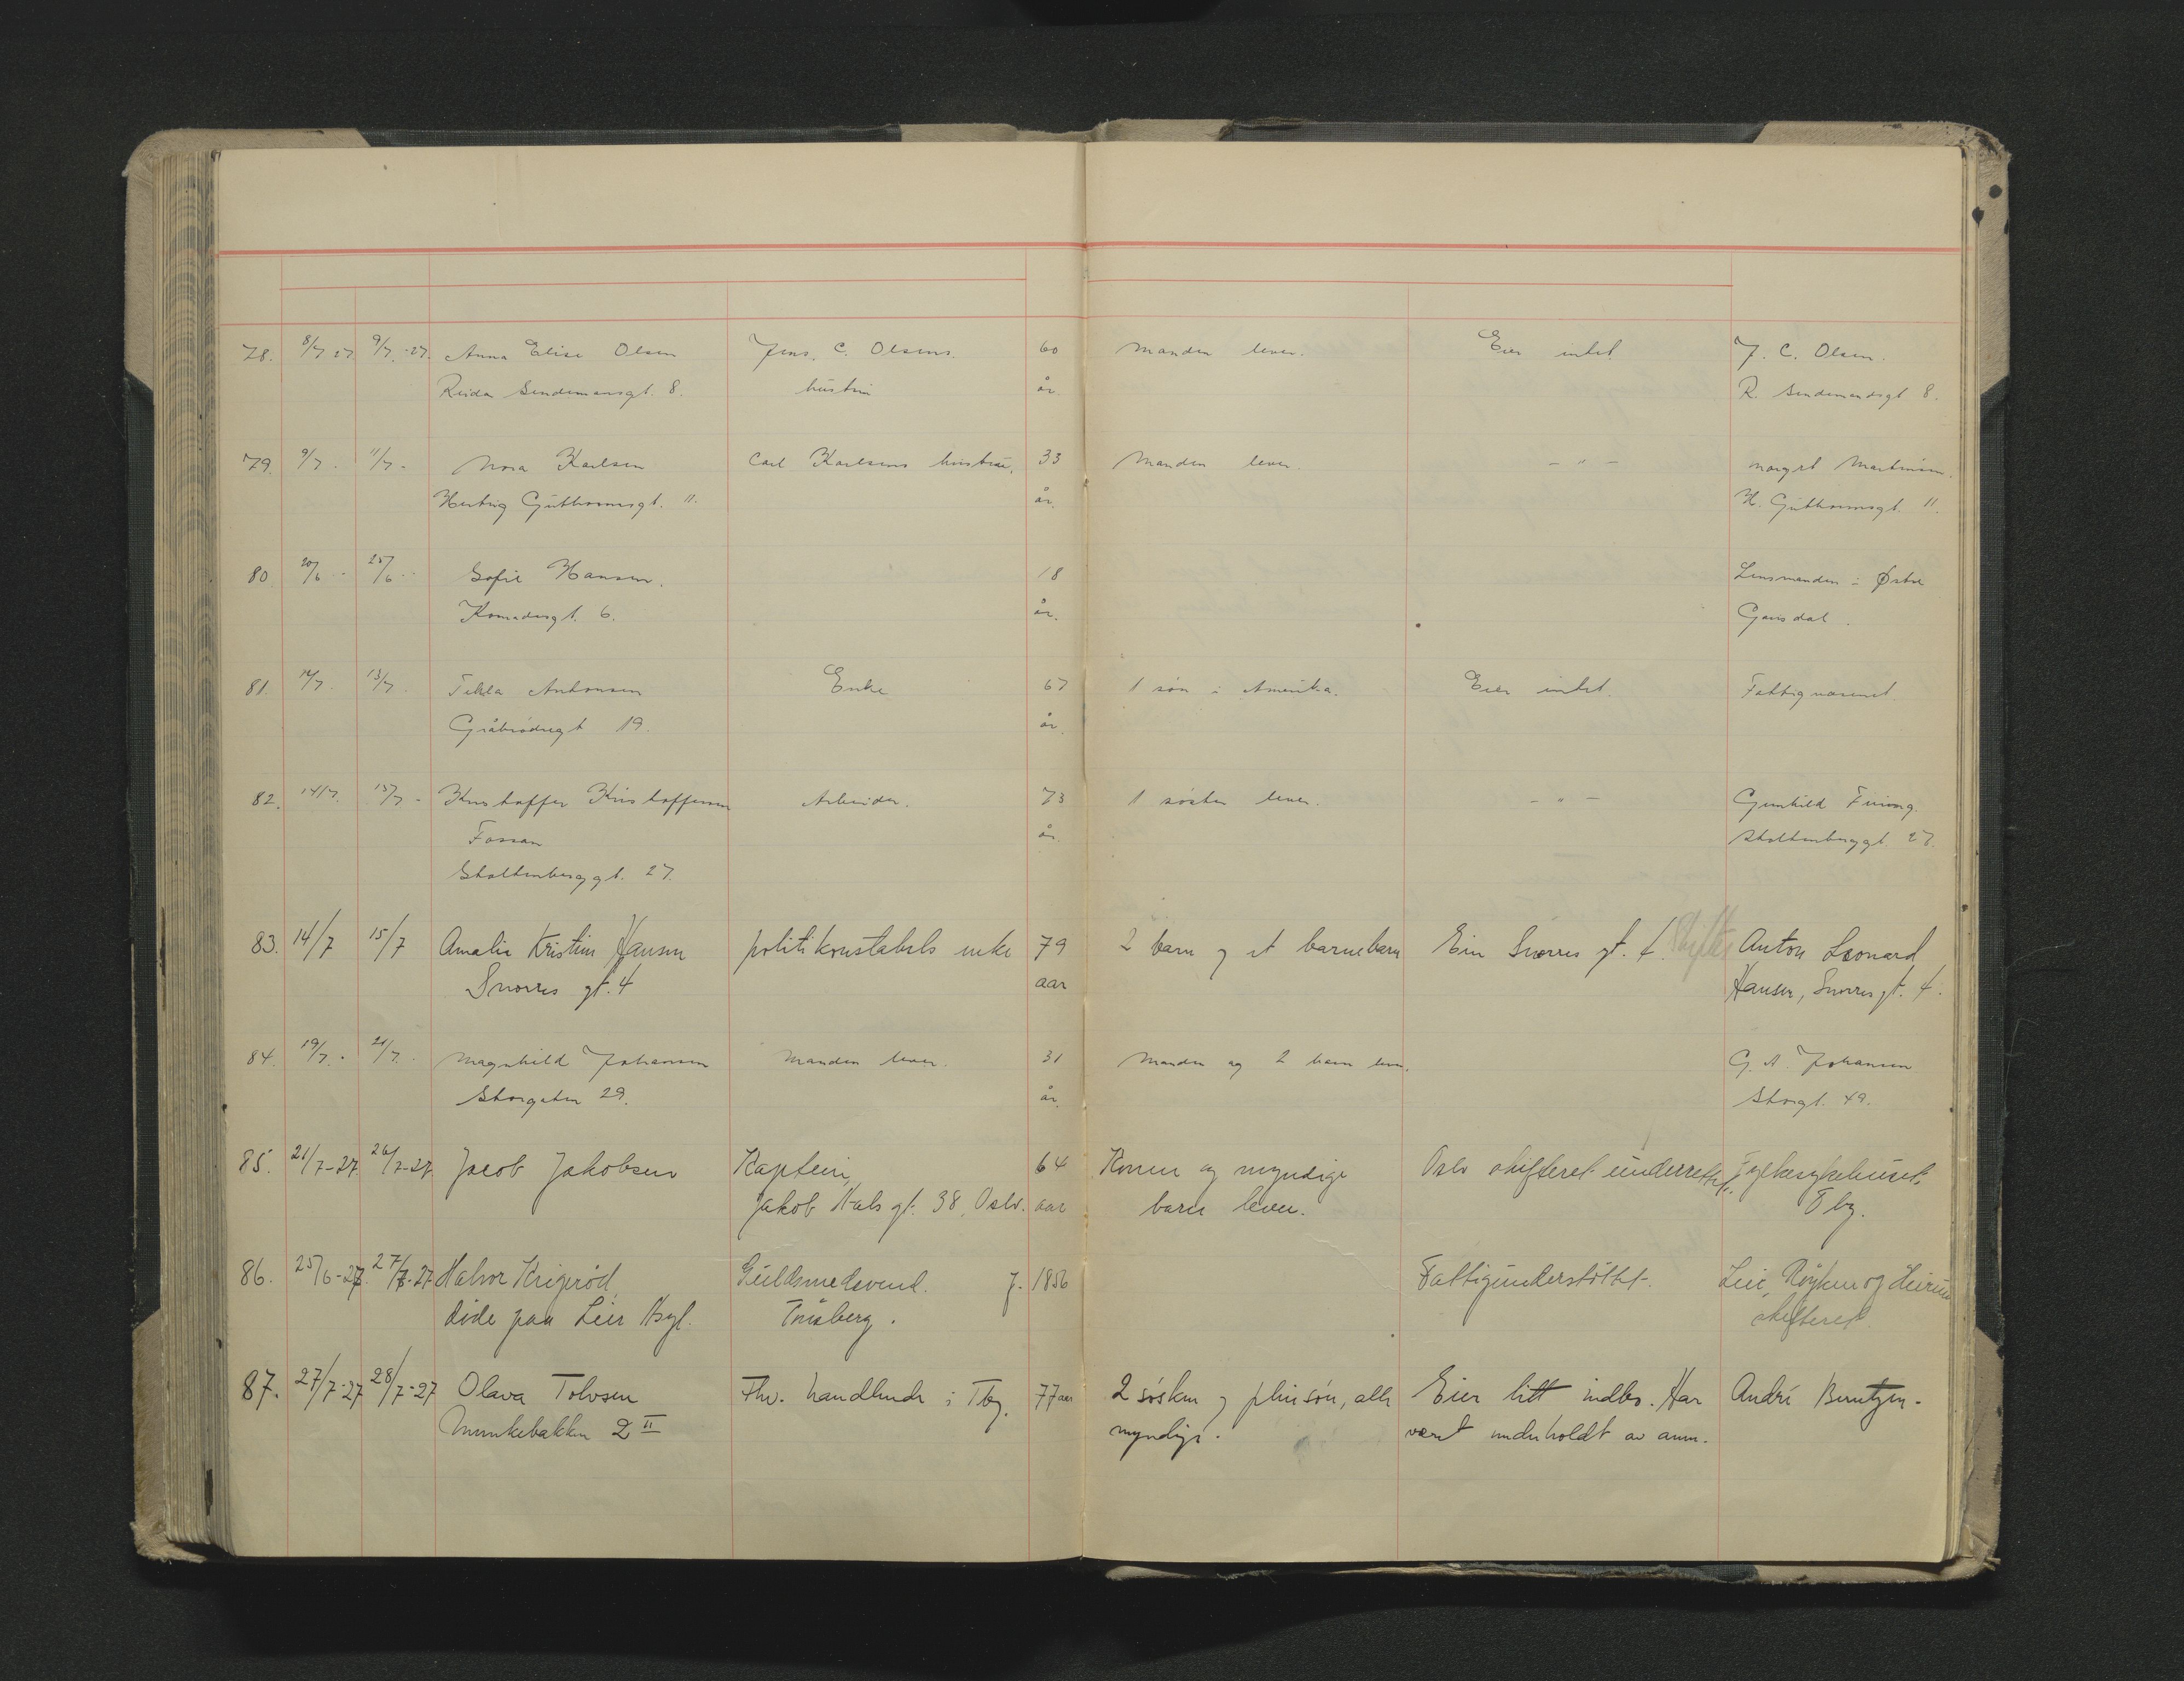 78. 8/7 27. 9/7 -27. Anna Elise Olsen Jens. C. Olsens. 60 Manden lever. Eier intet J. C. Olsen.
Reidar Sendemansgt. 8. hustru år. R. Sendemandsgt 8.
79. 9/7. 11/7 - Nora Karlsen Carl Karlsens hustru. 33 Manden lever. - " - Margit Martinsen.
Hertug Guthormsgt. 11. år. H. Guthormsgt. 11.
80 20/6 - 25/6 - Sofie Hansen. 18 Lensmanden i Østre
6. år. Gausdal.
81. 12/7. 13/7. Tekla Antonsen Enke 67 1 søn i Amerika. Eier intet. Fattigvæsenet
Gråbrødregt 19. år.
82. 14/7. 15/7 - Kristoffer Kristoffersen Arbeider. 73 1 søster lever. - " - Gunhild
Fossan år. Stoltenberggt. 27.
Stoltenberggt. 27.
83. 14/7 15/7 Amalie Kristine Hansen politikonstabels enke 79 2 barn og et barnebarn Eier Snorres gt. 4. Skiftes Anton Leonard
Snorres gt. 4 aar Hansen, Snorres gt. 4.
84. 19/7. 21/7. Magnhild Johansen Manden lever. 31 Manden og 2 barn lever. G. A. Johansen
Storgaten 29. år. Storgt. 49.
85. 21/7-27. 26/7-27. Jacob Jakobsen Kaptein, 64 Konen og myndige Oslo skifteret underrettet. Fylkesykehuset.
Jakob Hals gt. 38, Oslo. aar barn lever. Tbg.
86. 25/6-27. 27/7-27 Halvor Guldsmedsvend. f. 1856 Fattigunderstøttet. Lier, Røyken og Hurum
døde paa Lier Asyl. Tønsberg. skifteret
87. 27/7-27 28/7-27 Olava Tolvsen Fhv. handlende i Tbg. 77 aar 2 søsken og pleiesøn, alle Eier litt indbo. Har André Berntzen.
Munkebakken 2 II myndige. været underholdt av